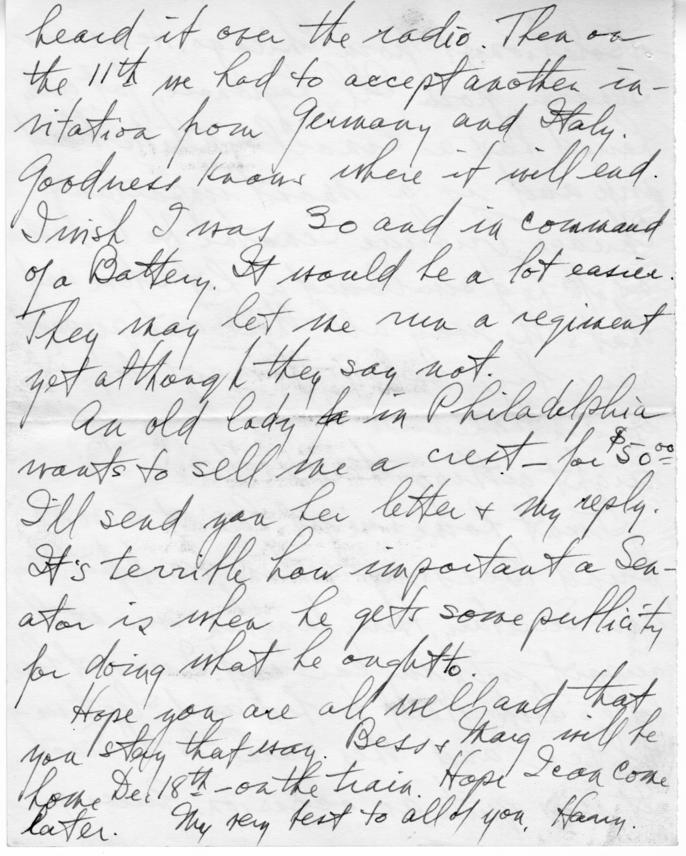 heard it over the radio. Then on
the 11th we had to accept another in-
vitation from Germany and Italy.
Goodness knows where it will end.
I wish I was 30 and in command
of a Battery. It would be a lot easier.
They may let me run a regiment
yet although they say not.
An old lady in Philadelphia
wants to sell me a crest - for $50.00
I'll send you her letter & my reply.
It's terrible how important a Sen-
ator is when he gets some publicity
for doing what he ought to.
Hope you are all well and that
you stay that way. Bess & Marg will be
home Dec. 18th - on the train. Hope I can come
later. My very best to all of you, Harry.